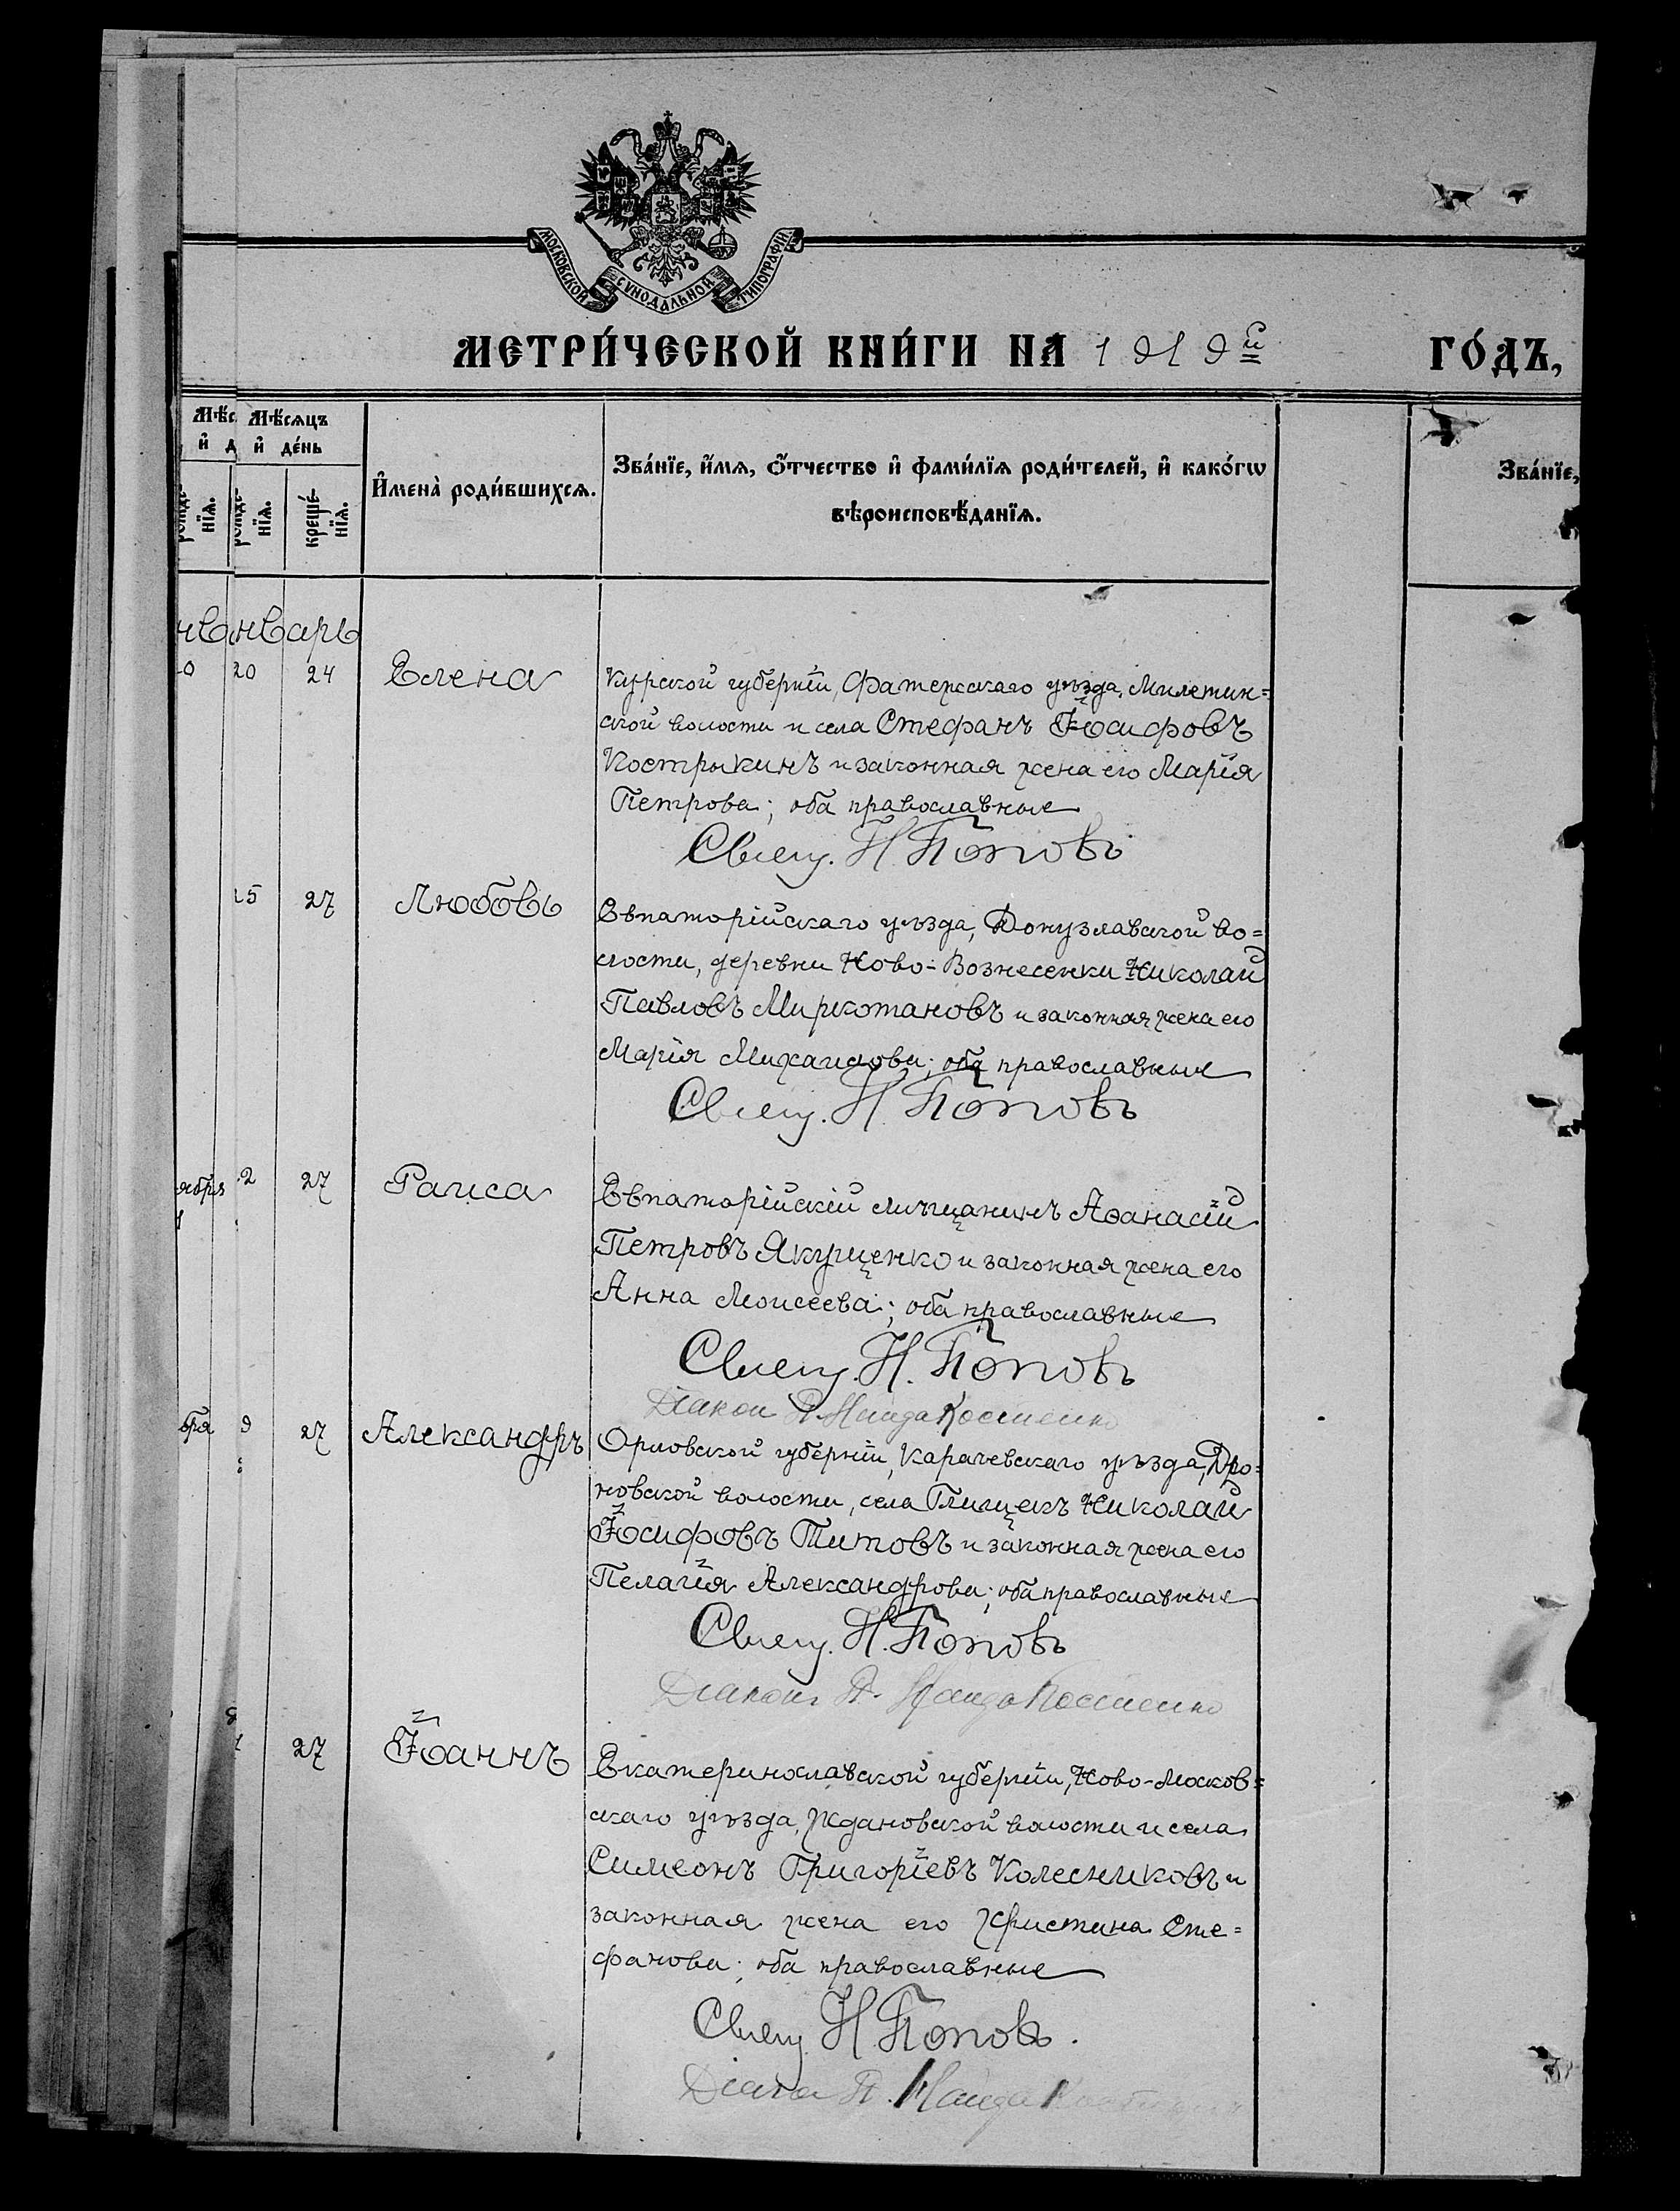 МОСКОВСКОЙ СѴНОДАЛЬНОЙ ТИПОГРАФІИ
МЕТРИ́ЧЕСКОЙ КНИ́ГИ НА 1919й ГО́ДЪ,
Мѣ́сяцъ и де́нь
рожде́нїѧ.
креще́нїѧ.
И҆мена̀ роди́вшихсѧ.
Зва́нїе, и҆́мѧ, ѻ҆́тчество и҆ фами́лїѧ роди́телей, и҆ како́гѡ
вѣроисповѣ́данїѧ.
Зва́нїе,
нварь
20 24 Елена
Курской губерніи, Фатежскаго уѣзда, Милетин=
ской волости и села Стефанъ Іосифовъ
Кострыкинъ и законная жена его Марія
Петрова; оба православные
Свящ. Н. Поповъ
27 Любовь
Евпаторійскаго уѣзда, Донузлавской во=
лости, деревни Ново-Вознесенки Николай
Павловъ Миркотановъ и законная жена его
Марія Михаилова; оба православные
Свящ. Н. Поповъ
27 Раиса
Евпаторійскій мѣщанинъ Аѳанасій
Петровъ Якущенко и законная жена его
Анна Моисеева; оба православные
Свящ. Н. Поповъ
Діакон
27 Александръ
Орловской губерніи, Карачевскаго уѣзда, Дро=
новской волости, села Глищекъ Николай
Іосифовъ Титовъ и законная жена его
Пелагія Александрова; оба православные
Свящ. Н. Поповъ
Діаконъ
27 Іоаннъ
Екатеринославской губерніи, Ново-Москов=
скаго уѣзда, Ждановской волости и села
Симеонъ Григоріевъ Колесниковъ и
законная жена его Христина Сте=
фанова; оба православные
Свящ. Н. Поповъ.